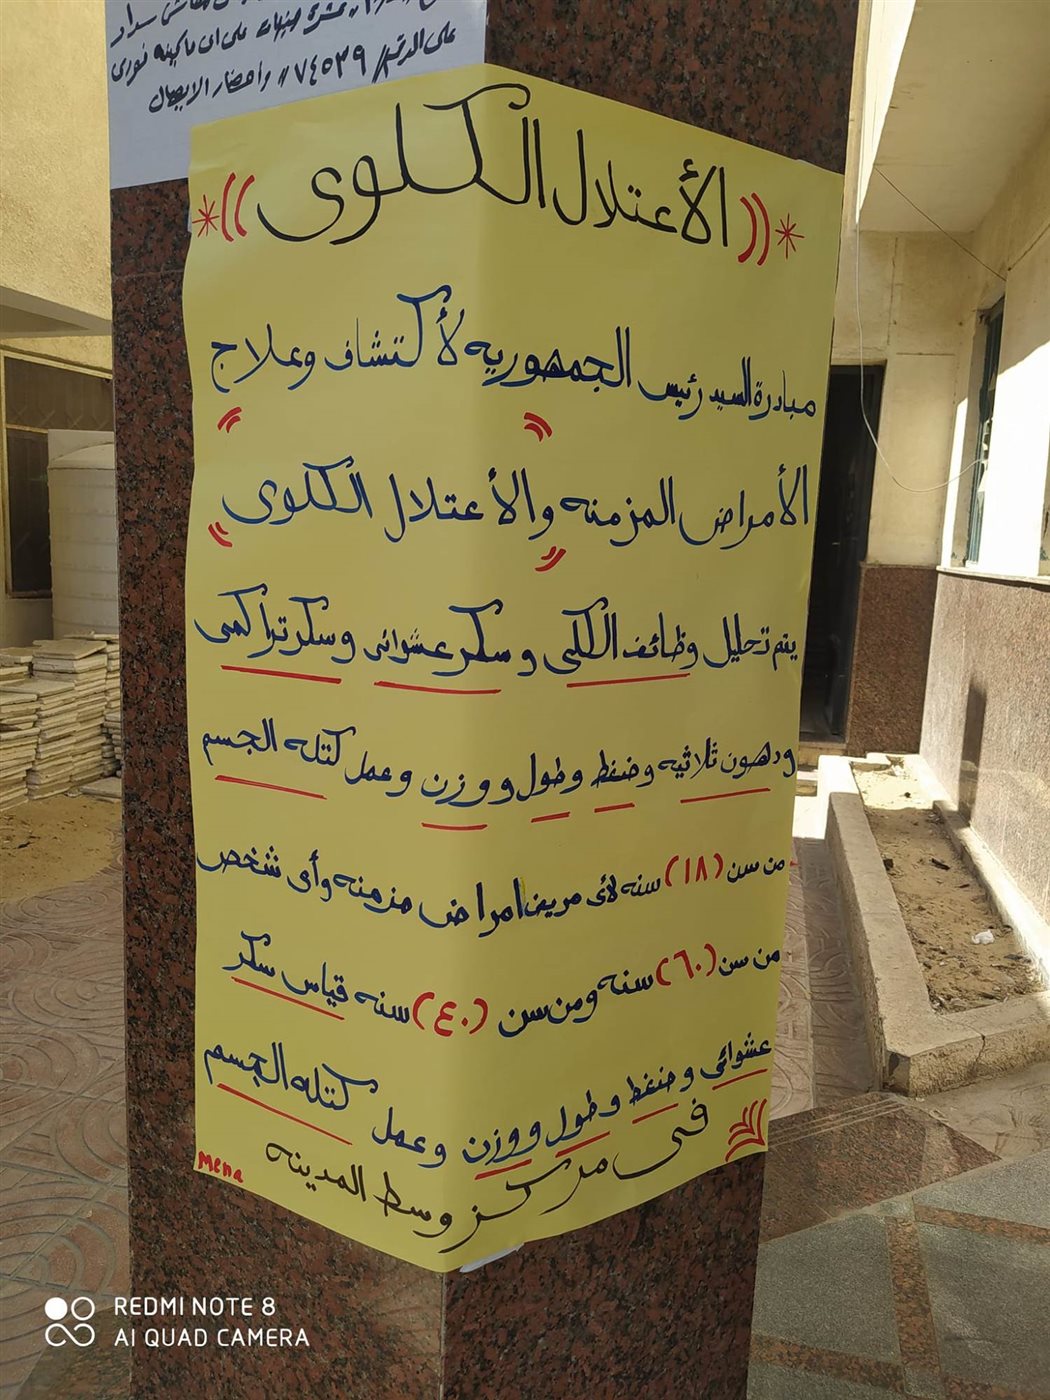 على الرقم / ٧٤٥٣٩ // واحضار الايصال
* (( الأعتلال الكلوى )) *
مبادرة السيد رئيس الجمهوريه لأكتشاف وعلاج
الأمراض المزمنه والأعتلال الكلوى
يتم تحليل وظائف الكلى وسكر عشوائى وسكر تراكمى
ودهون ثلاثيه وضغط وطول ووزن وعمل كتله الجسم
من سن (١٨) سنه لأى مريض امراض مزمنه وأى شخص
من سن (٦٠) سنه ومن سن (٤٠) سنه قياس سكر
عشوائي وضغط وطول ووزن وعمل كتله الجسم
فى مركز وسط المدينه
Mena
REDMI NOTE 8
AI QUAD CAMERA